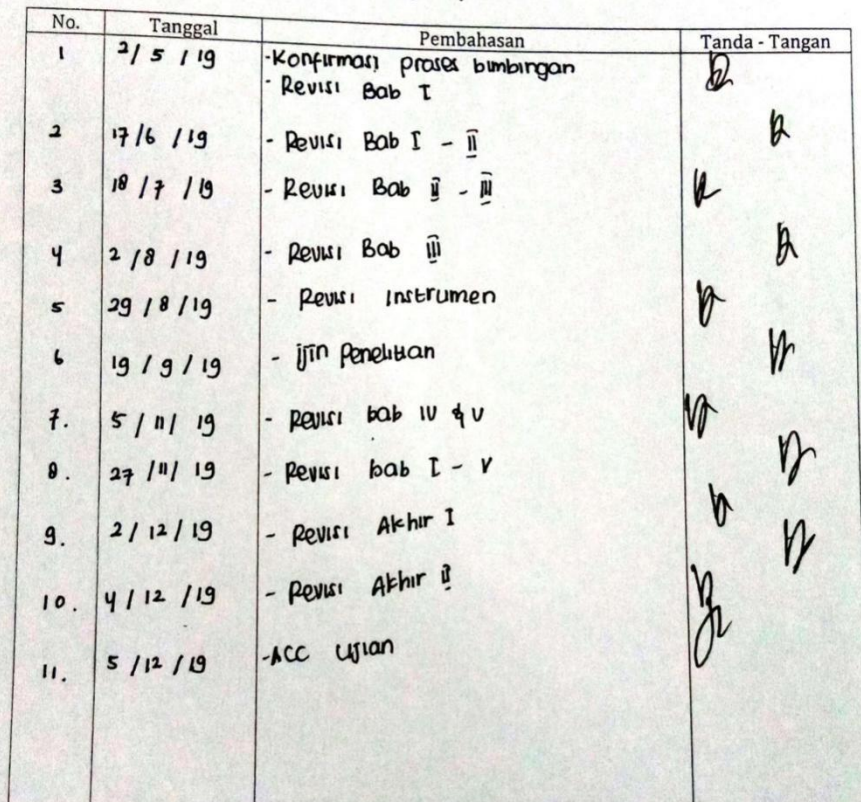 No. Tanggal Pembahasan Tanda - Tangan
1 2/5/19 - Konfirmasi proses bimbingan
- Revisi Bab I
2 17/6/19 - Revisi Bab I - II
3 18/7/19 - Revisi Bab II - III
4 2/8/19 - Revisi Bab III
5 29/8/19 - Revisi Instrumen
6 19/9/19 - ijin Penelitian
7. 5/11/19 - Revisi bab IV & V
8. 27/11/19 - Revisi bab I - V
9. 2/12/19 - Revisi Akhir I
10. 4/12/19 - Revisi Akhir II
11. 5/12/19 - ACC Ujian